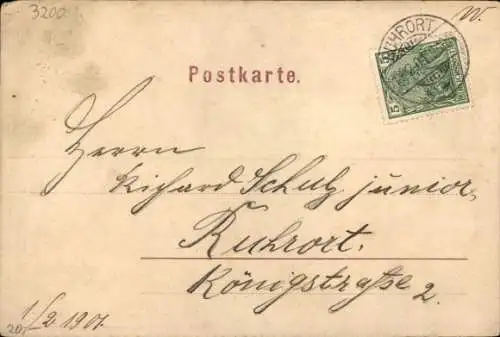 3200
W.
RUHRORT
5 5
Postkarte.
Herrn
Richard Schulz junior,
Ruhrort.
Königstraße 2.
1/2 1901.
20,